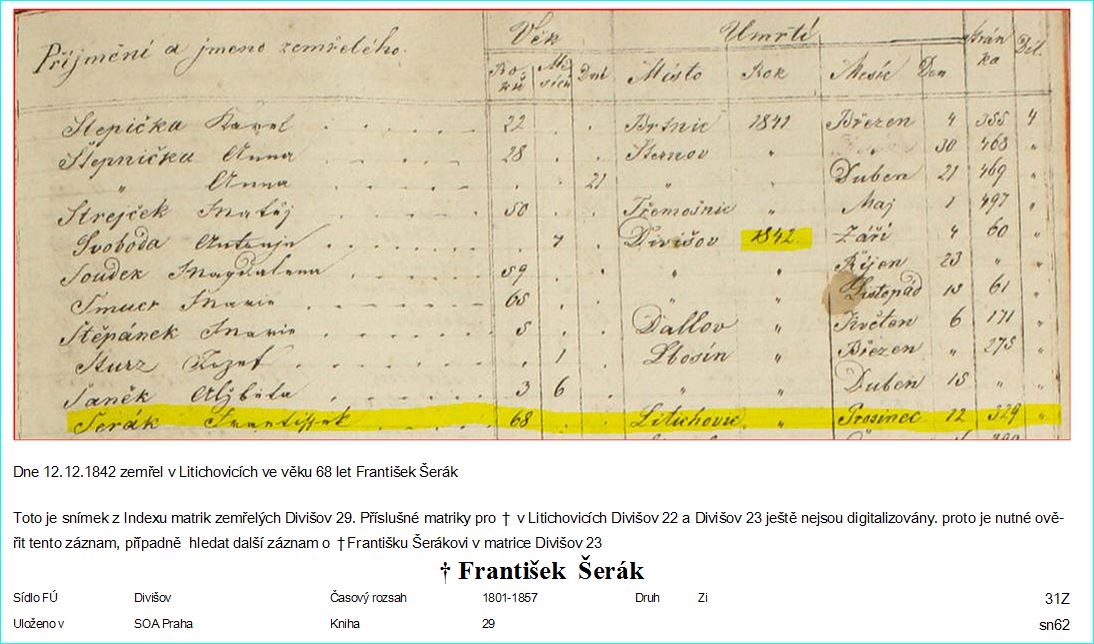 Příjmění a jmeno zemřelého. Věk Umrtí Strán ka Díl.
Ro- ků Mě- síců Dnů Místo Rok Mesíc Den
Štepička Karel 22 . . Brtnic 1841 Březen 4 355 4
Štepnička Anna 28 . . Šternov " " 30 468 "
" Anna . . 21 " " Duben 21 469 "
Strejček Matěj 50 . . Třemošnic " Maj 1 497 "
Svoboda Antonín . 7 . Divišov 1842. Září 4 60 "
Soudek Magdalena 59 . . " " Říjen 23 " "
Šmucr Marie 65 . . " " Listopád 15 61 "
Štěpánek Marie 5 . . Dallov " Květen 6 171 "
Sturz Jozef . 1 . Lbosín " Březen " 275 "
Šaněk Alžběta 3 6 . " " Duben 15 " "
Šerák František 68 Litichovic Prosinec 12 329 "
Dne 12.12.1842 zemřel v Litichovicích ve věku 68 let František Šerák
Toto je snímek z Indexu matrik zemřelých Divišov 29. Příslušné matriky pro † v Litichovicích Divišov 22 a Divišov 23 ještě nejsou digitalizovány. proto je nutné ově-
řit tento záznam, případně hledat další záznam o †Františku Šerákovi v matrice Divišov 23
† František Šerák
Sídlo FÚ Divišov Časový rozsah 1801-1857 Druh Zi 31Z
Uloženo v SOA Praha Kniha 29 sn62